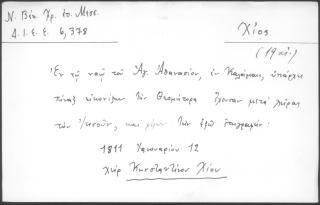 Ν. Βέη, Χρ. ἐπ. Μεσσ.
Δ.Ι.Ε.Ε. 6,378
Χίος
(19 αἰ.)
Ἐν τῷ ναῷ τοῦ Ἁγ. Ἀθανασίου, ἐν Καλάμαις, ὑπάρχει
πίναξ εἰκονίζων τὴν Θεομήτορα ἔχουσαν μετὰ χεῖρας
τὸν Ἰησοῦν, καὶ φέρων τὴν ἑξῆς ἐπιγραφήν:
1811 Ἰαννουαρίου 12
χεὶρ Κωνσταντίνου Χίου